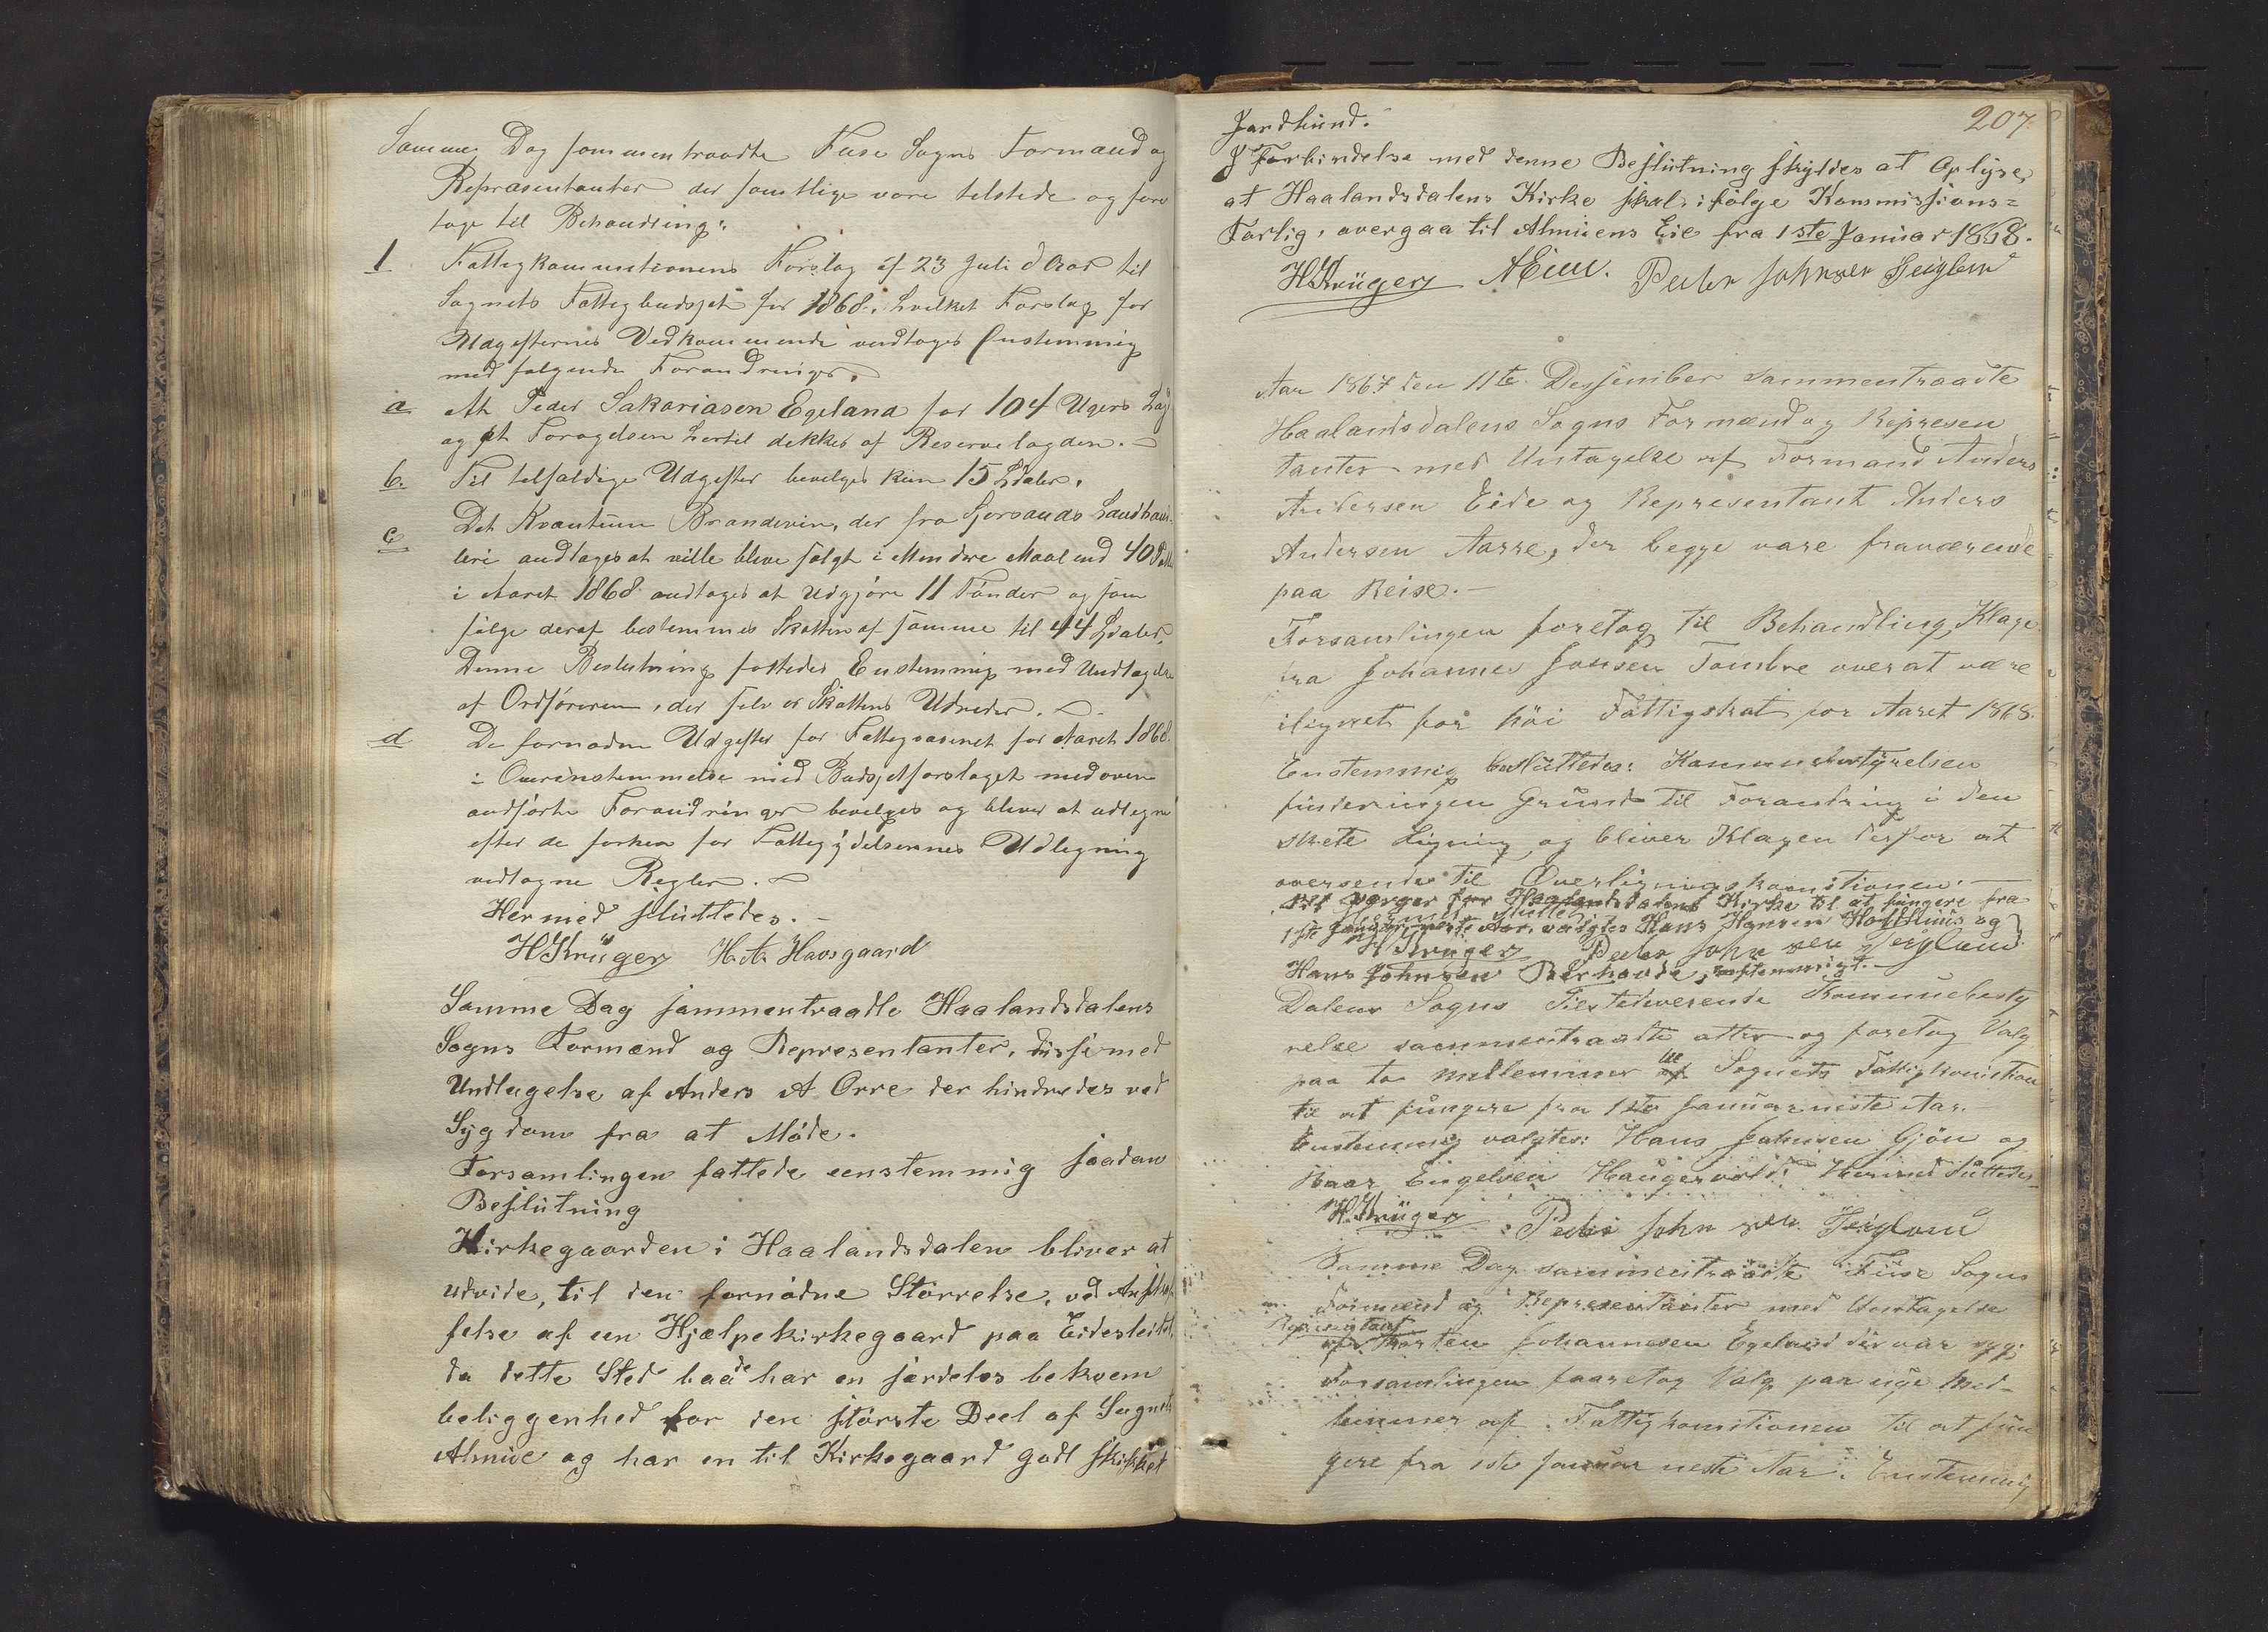 Samme Dag sammentraadte Fuse Sogns Formænd og
Repræsentanter der samtlige vare tilstede og fore
toge til Behandling:
1 Fattigkommissionens Forslag af 23 Juli d Aar til
Sognets Fattigbudsjet for 1868, hvilket Forslag for
Udgifternes Vedkommende vedtoges Enstemmig
med følgende Forandringer.
a At Peder Sakariasen Egeland får 104 Ugers Lægd
og at Forøgelsen hertil dekkes af Reservelægden.
b. Til tilfældige Udgifter bevilges kun 15 Spdaler.
c Det Kvantum Brændevin, der fra Gjørsands Landhand-
leri antages at ville blive solgt i Mindre Maal end 40 Potter
i Aaret 1868 antages at Udgjøre 11 Tønder og som
følge deraf bestemmes Skatten af samme til 44 Spdaler.
Denne Beslutning fattedes Enstemmig med Undtagelse
af Ordføreren, der selv er Skattens Udreder.
d De fornødne Udgifter for Fattigvæsenet for Aaret 1868
i Overenstemmelse med Budsjetforslaget med oven
anførte Forandringer bevilges og bliver at udlegne
efter de forhen for Fattigydelsernes Udlegning
vedtagne Regler.
Hermed sluttedes.
HKrüger H. A. Havsgaard
Samme Dag sammentraadte Haalandsdalens
Sogns Formænd og Representanter, disse med
Undtagelse af Anders A Orre der hindredes ved
Sygdom fra at Møde.
Forsamlingen fattede eenstemmig saadan
Beslutning
Kirkegaarden i Haalandsdalen bliver at
udvide, til den fornødne Størrelse, ved Anskaf
felse af een Hjælpekirkegaard paa Eidesleitet,
da dette Sted baade har en særdeles bekvem
beliggenhed for den største Deel af Sognets
Almue og har en til Kirkegaard godt skikket
207
Jordbund.
I Forbindelse med denne Beslutning skyldes at Oplyse,
at Haalandsdalens Kirke skal ifølge Kommissions=
Forlig, overgaa til Almuens Eie fra 1ste Januar 1868.
HKrüger AEide. Peder Johnsen Teigland
Aar 1867 den 11te Dessember sammentraadte
Haalandsdalens Sogns Formænd og Represen
tanter med Untagelse af Formand Anders
Andersen Eide og Representant Anders
Andersen Aarre, der begge vare fraværende
paa Reise.
Forsamlingen foretog til Behandling Klage
fra Johannes Jonsen Tombre over at være
ilignet for høi Fattigskat for Aaret 1868.
Enstemmig besluttedes: Kommunebestyrelsen
finder ingen Grund til Forandring i den
skete Ligning og bliver Klagen derfor at
oversende til Overligningskomitionen.
Til Værger for Haalandsdalens Kirke til at fungere fra
Hermed sluttet
1ste Januar neste Aar, valgtes Hans Hansen Holdhuus og
H Krüger Peder Johnsen Teigland
Hans Johnsen Berhovde, enstemmigt.
Dalens Sogns Tilstedeverende Kommunebesty
relse sammentraadte atter og foretog Valg
paa to Medlemmer til Sognets Fattigkomition
til at fungere fra 1ste Januar neste Aar.
Enstemmig valgtes: Hans Johnsen Gjøn og
Haar Engelsen Haugervold. Hermed sluttedes
H.Krüger Peder Johnsen Teigland
Samme Dag sammentraadte Fuse Sogns
Formænd og Representanter med Undtagelse
Representant
af Morten Johannesen Egeland der var syg;
Forsamlingen foretog Valg paa nye Med-
lemmer af Fattigkomitionen til at fun
gere fra 1ste Januar neste Aar. Enstemmig